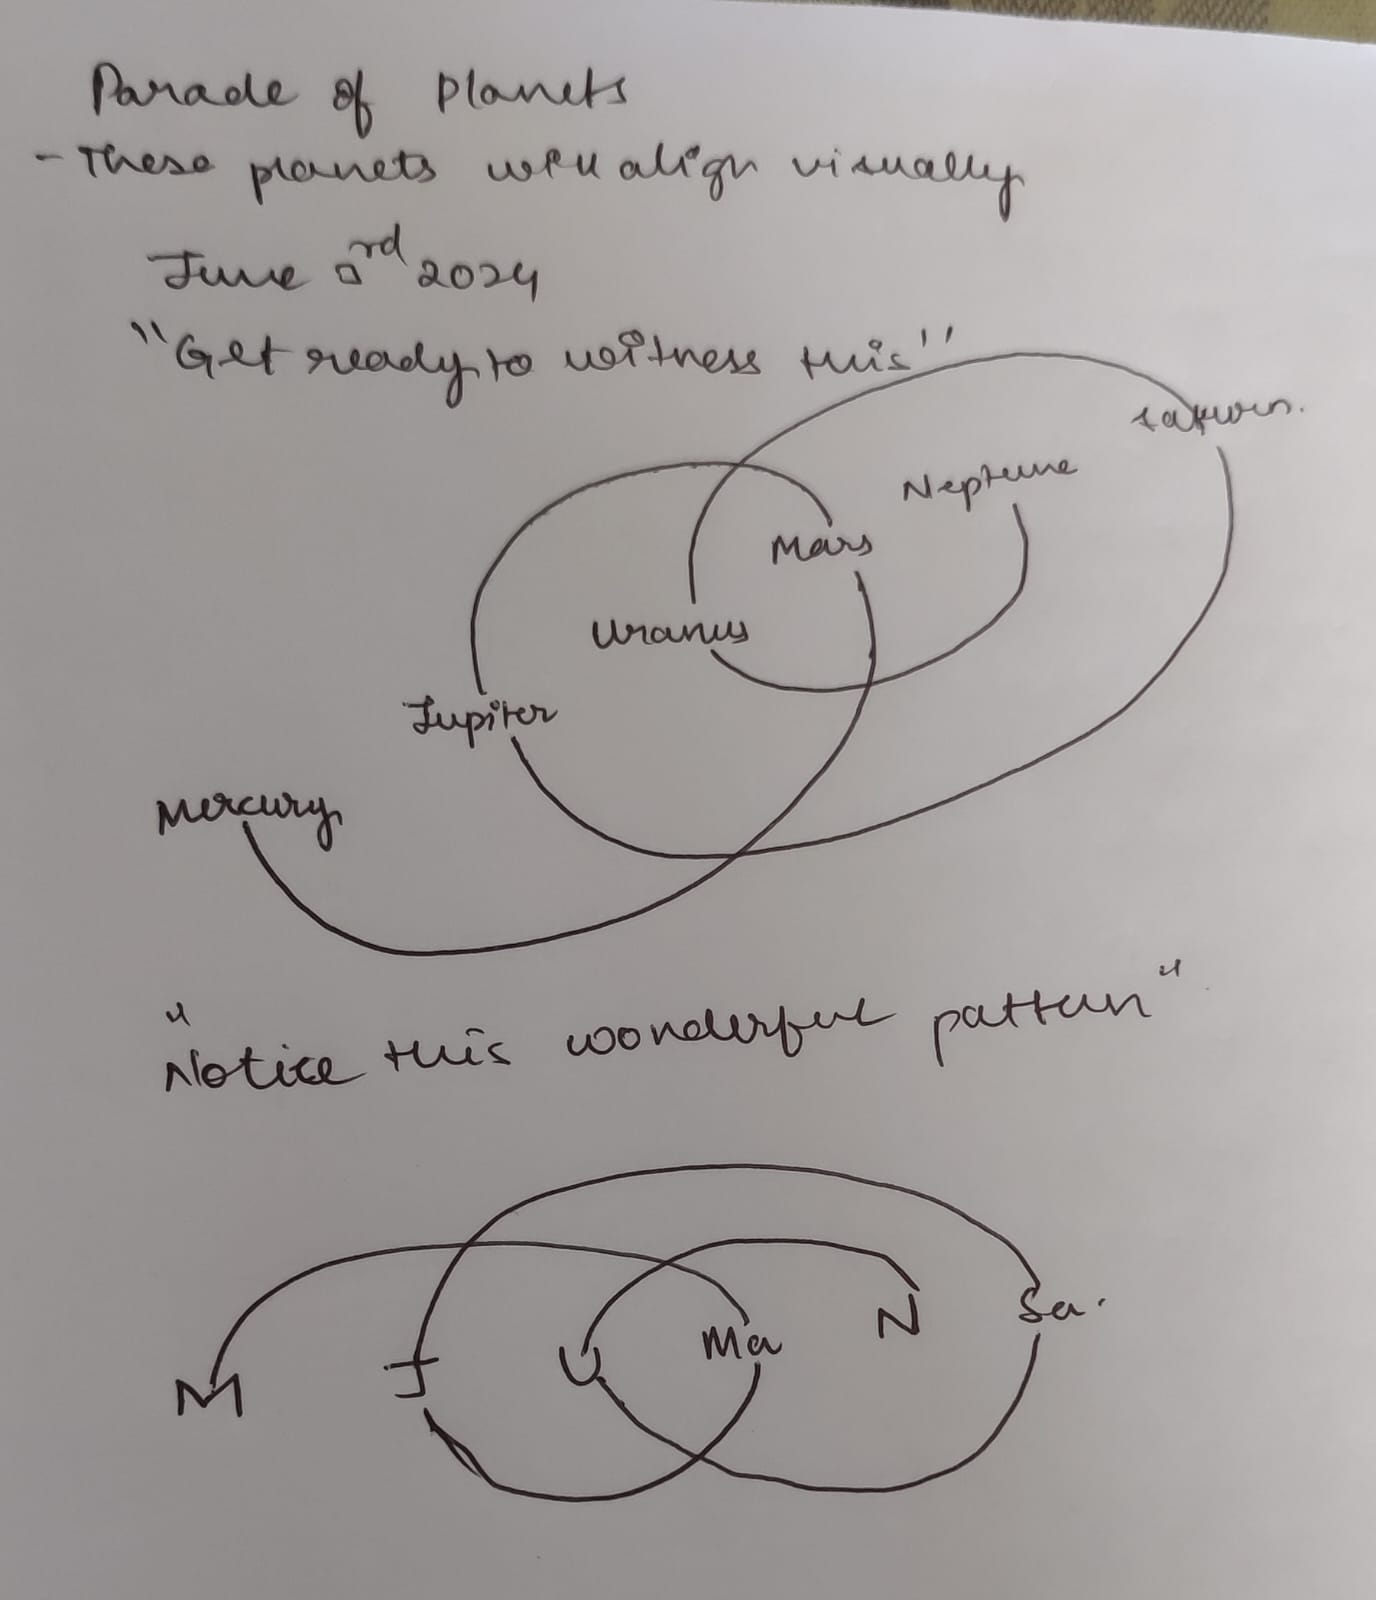 Parade of Planets
- These planets will align visually
June 3rd 2024
"Get ready to witness this"
Saturn.
Neptune
Mars
Uranus
Jupiter
Mercury
"Notice this wonderful pattern"
M J U Ma N Sa.